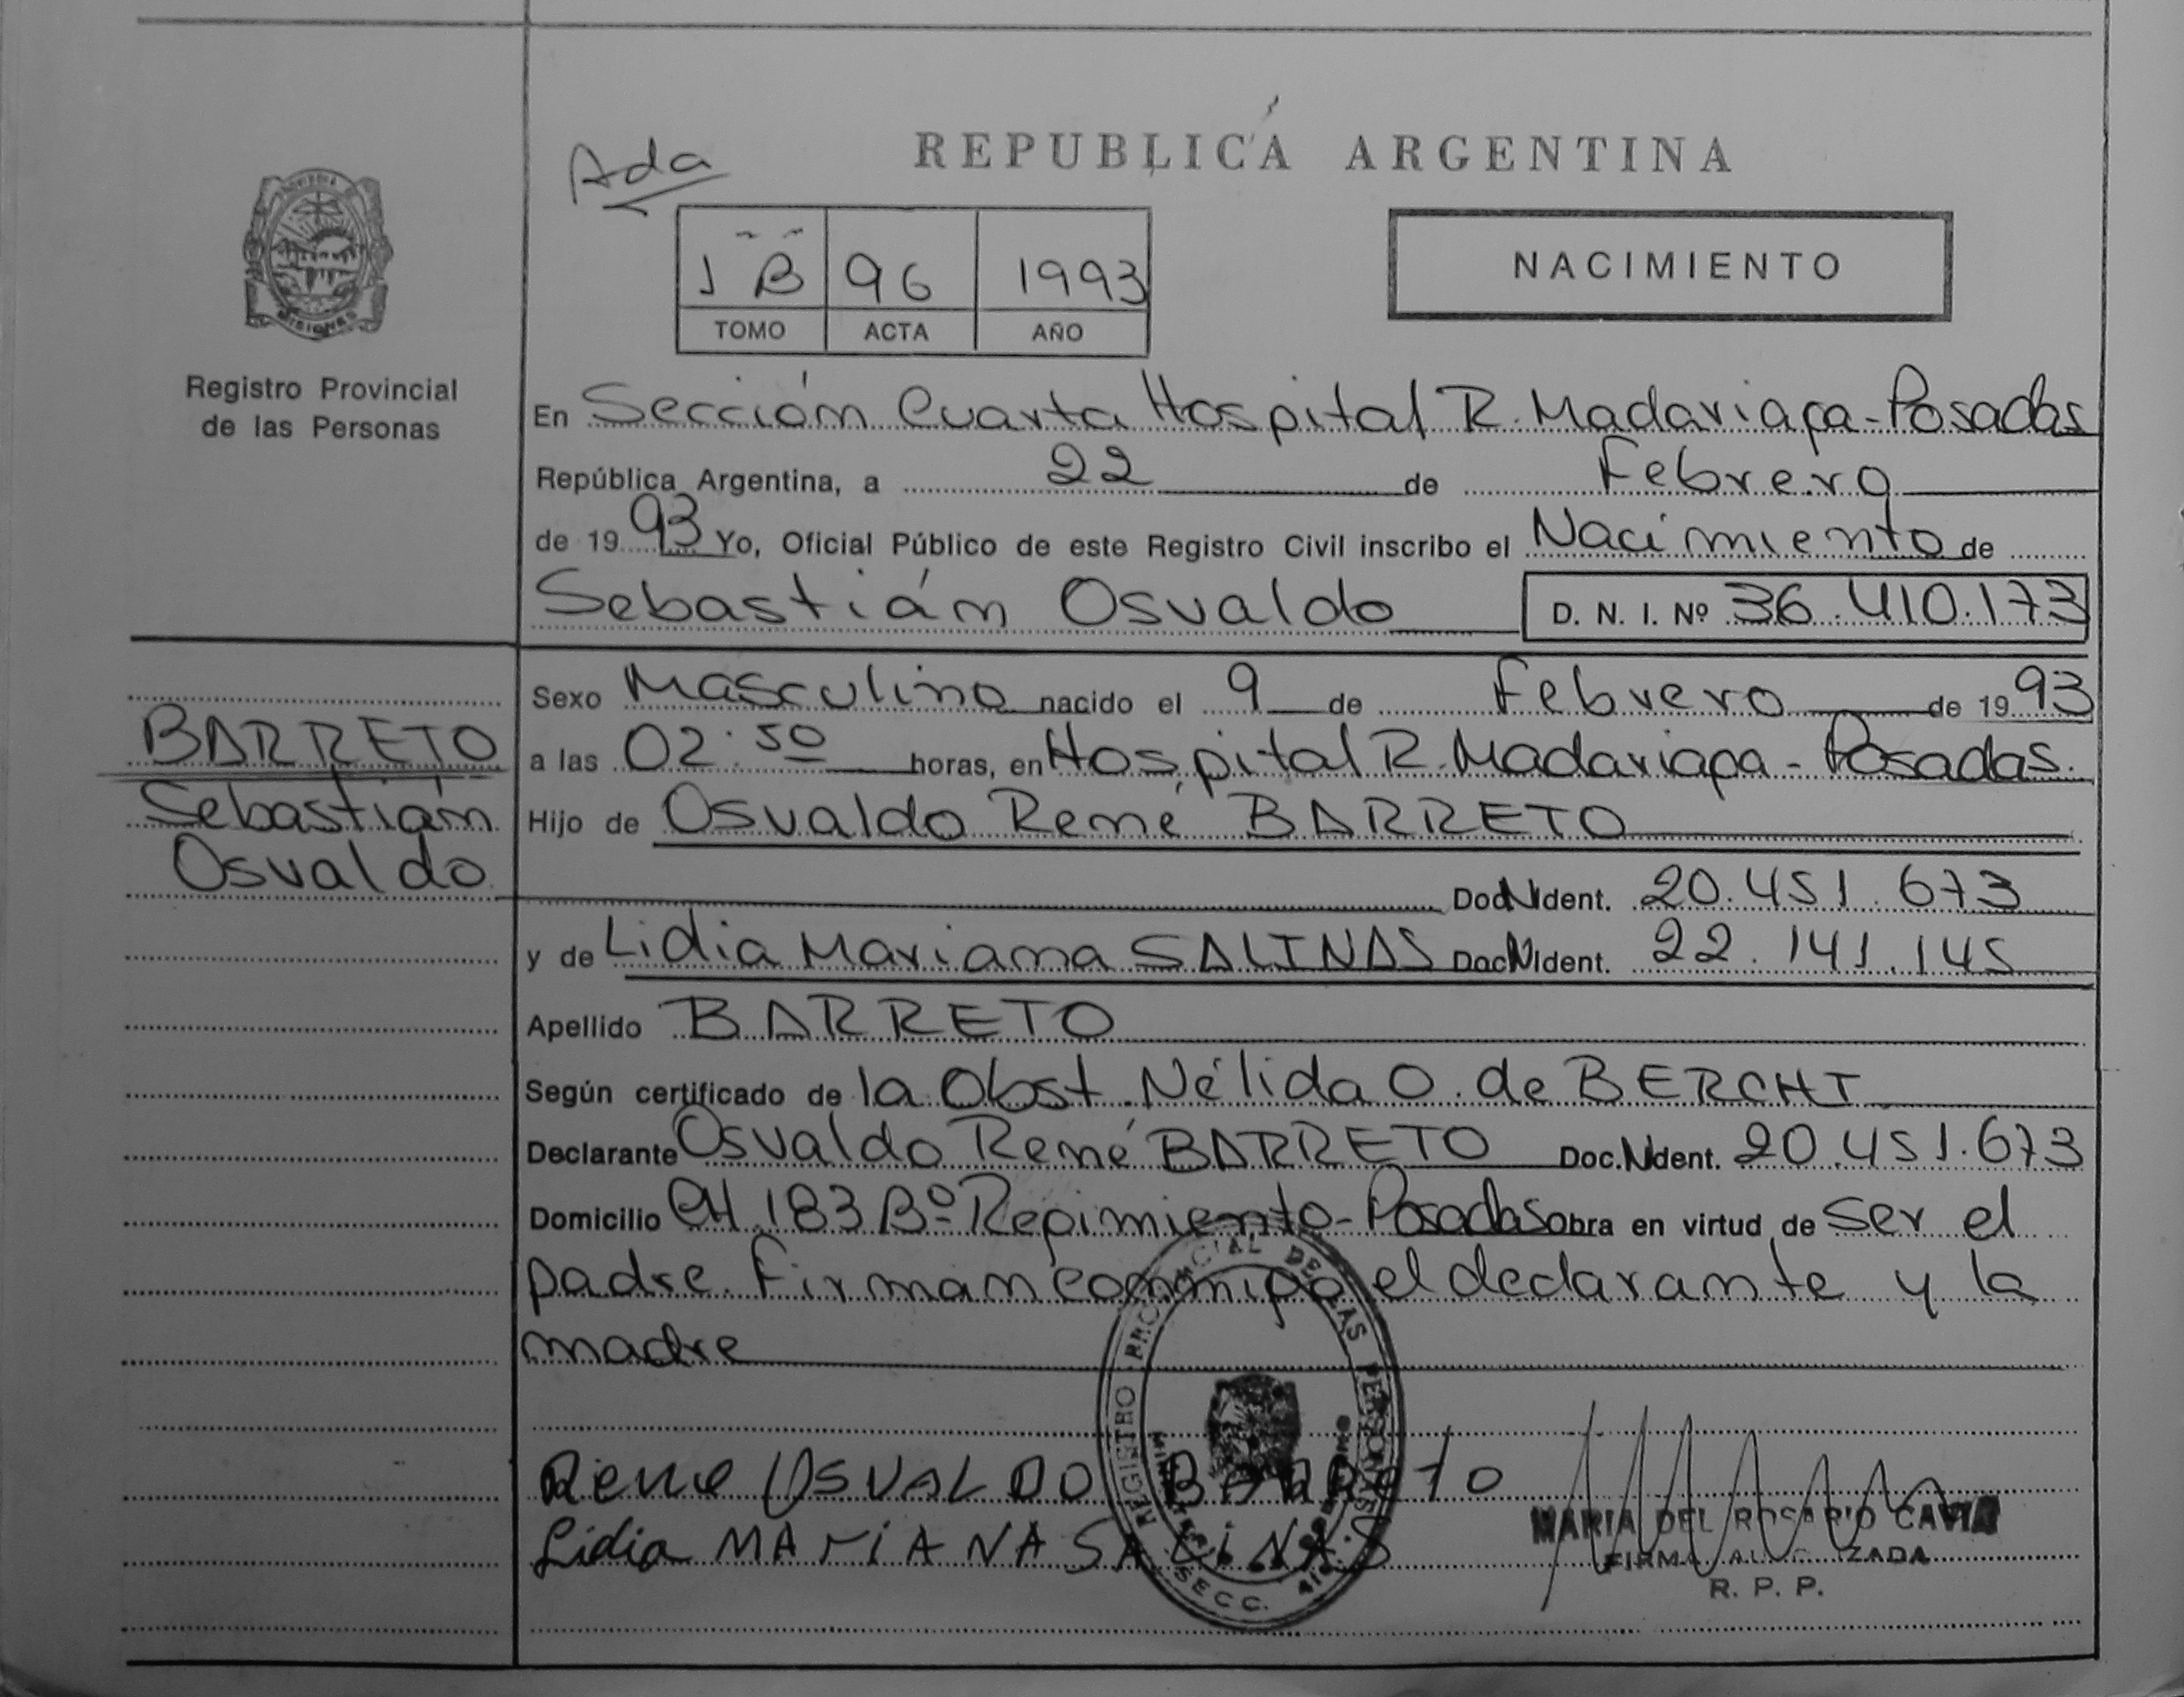 Ada
REPUBLICA ARGENTINA
1 B 96 1993
TOMO ACTA AÑO
NACIMIENTO
MISIONES
Registro Provincial
de las Personas
En Sección Cuarta Hospital R. Madariaga - Posadas
República Argentina, a 22 de Febrero
de 19 93 Yo, Oficial Público de este Registro Civil inscribo el Nacimiento de
Sebastián Osvaldo D. N. I. Nº 36.410.173
Sexo Masculino nacido el 9 de Febrero de 19 93
a las 02:50 horas, en Hospital R. Madariaga - Posadas.
Hijo de Osvaldo René BARRETO
Doc N Ident. 20.451.673
y de Lidia Mariana SALINAS Doc N Ident. 22.141.145
Apellido BARRETO
Según certificado de la Obst. Nélida O. de BERCHT
Declarante Osvaldo René BARRETO Doc. N Ident. 20.451.673
Domicilio CH 183 Bº Regimiento - Posadas obra en virtud de ser el
padre. Firman conmigo el declarante y la
madre
BARRETO
Sebastián
Osvaldo
Rene OSVALDO BARRETO
Lidia MARIANA SALINAS
REGISTRO PROVINCIAL DE LAS PERSONAS
SECC.
MARIA DEL ROSARIO CAVIA
FIRMA AUTORIZADA
R. P. P.